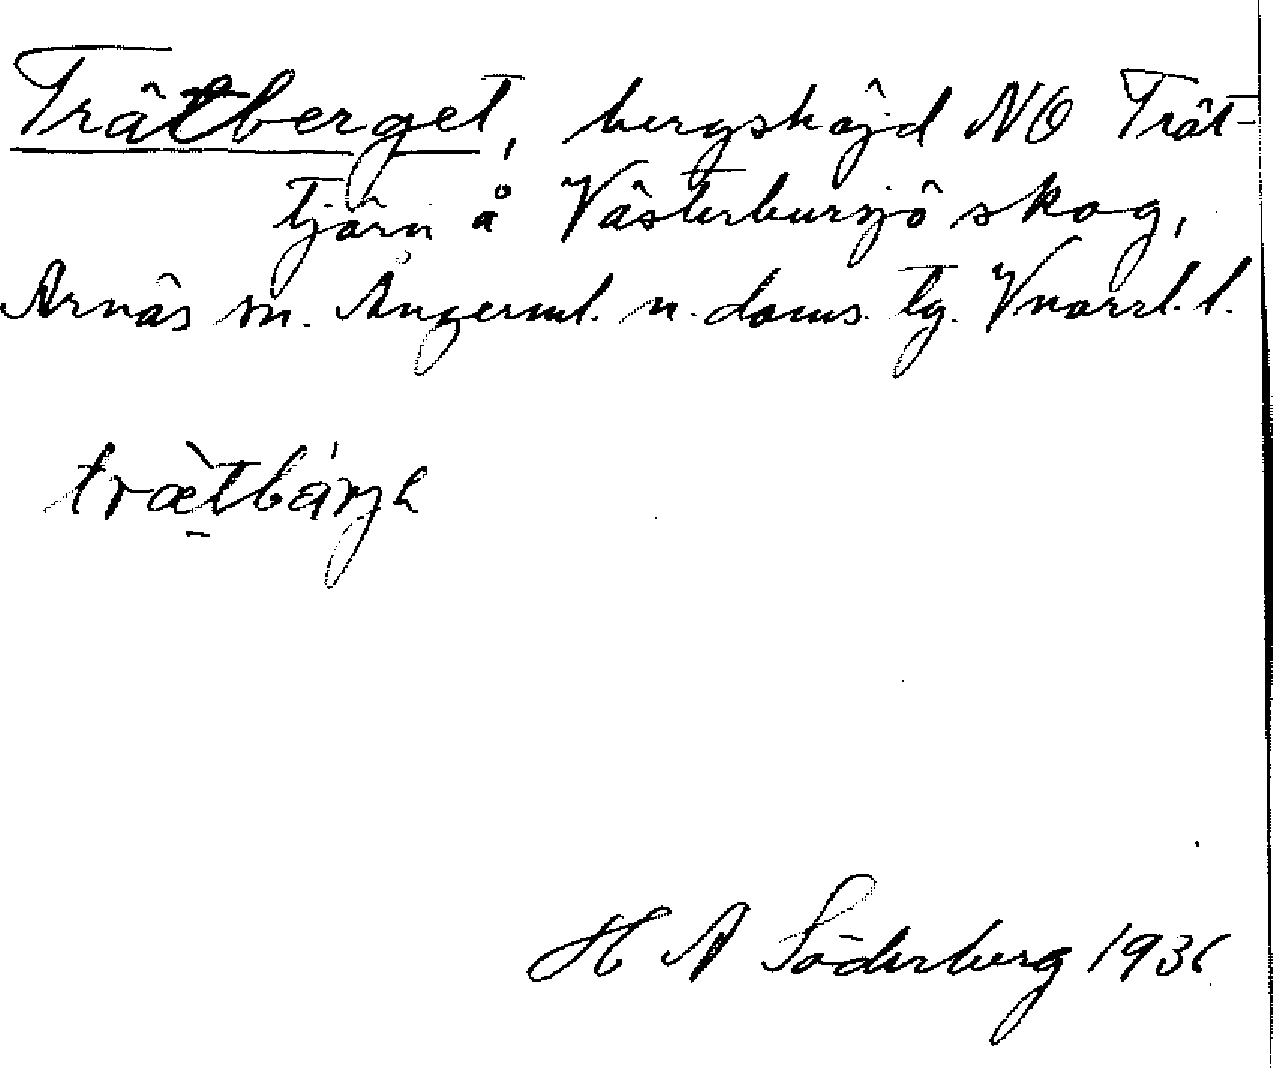 Trätberget, bergshöjd NO Trät-
tjärn å Västerbursjö skog,
Arnäs sn. Ångerml. n. doms. tg. Vnorrl. l.
trætbárjh
H A Söderberg 1936